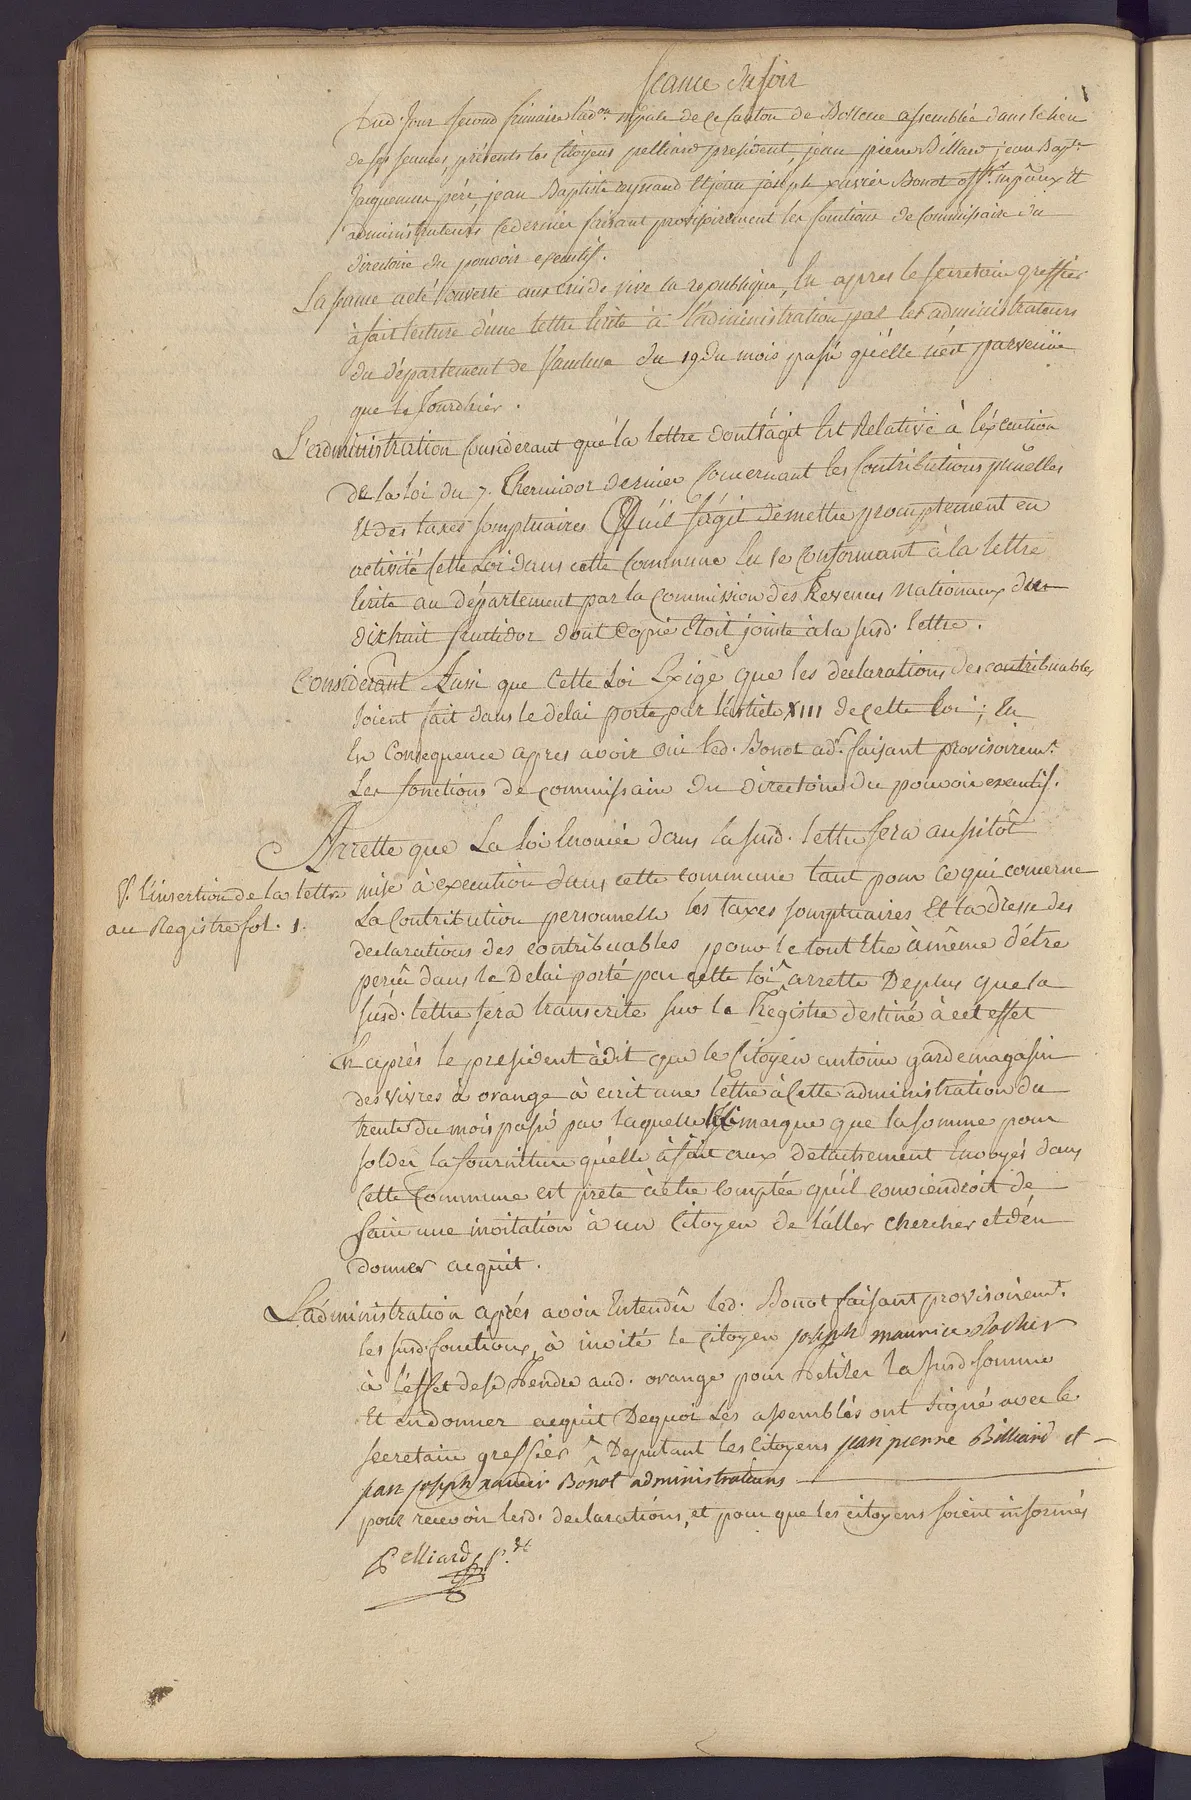 Seance du soir
Dud. jour second frimaire l'ad.on mpale de ce Canton de Bollene assemblée dans le lieu
de ses seances, présents les Citoyens pelliard president, jean pierre Billard jean Bap.te
Jacquemin péré jean Baptiste aymand Et jean joseph xavier Bonot off.rs mpaux Et
administrateurs Ce dernier faisant provisoirement les fonctions de Commissaire du
directoire du pouvoir executif.
La séance a été ouverte aux Cris de vive la republique, En apres le secretaire greffier
à fait lecture d'une lettre Ecrite à l'administration par les administrateurs
du département de Vaucluse du 19 du mois passé qu'elle n'est parvenüe
que le Jourdhier.
L'administration Considerant que la lettre dont s'agit Est Relative à l'éxecution
de la loi du 7. thermidor dernier Concernant les Contributions p.nelles
Et des taxes somptuaires Qu'il s'agit de mettre promptement en
activité Cette Loi dans cette Commune En se Conformant à la lettre
Ecrite au département par la Commission des Revenus Nationaux du
dixhuit fructidor dont Copie étoit jointe à la susd. lettre.
Considérant Aussi que Cette Loi Exige que les declarations des contribuables
soient fait dans le delai porté par l'article XIII de cette Loi; En
En Consequence apres avoir oui led. Bonot ad.r faisant provisoirem.t
Les fonctions de commissaire du directoire du pouvoir executif.
Arrette que La Loi Enoncée dans la susd. lettre sera aussitôt
V. l'insertion de la lettre
au Registre fol. 1.
mise à execution dans cette commune tant pour ce qui concerne
La Contribution personnelle les taxes somptuaires Et la dresse des
declarations des contribuables pour le tout Etre à même d'être
perçû dans le Delai porté par cette loi ^ arrette Deplus que la
susd. lettre sera transcrite sur le Registre destiné à cet effet
En après le president à dit que le Citoyen antoine garde magasin
des vivres à orange à ecrit une lettre à Cette administration du
trente du mois passé par laquelle Il marque que la somme pour
solder la fourniture qu'elle à fait aux detachement Envoyés dans
Cette Commune est prete à etre Comptée qu'il Conviendroit de
faire une invitation à un Citoyen de l'aller chercher et d'en
donner acquit.
L'administration aprés avoir Entendû led. Bonot faisant provisoirem.t
les susd. fonctions, à invité le Citoyen joseph maurice Rocher
à l'effet de se Rendre aud. orange pour Retirer la susd. somme
Et en donner acquit Dequoi Les assemblés ont signé avec le
secretaire greffier ^ Deputant les Citoyens jean pierre Billiard et
jean joseph xavier Bonot administrateurs
pour recevoir lesd. declarations, et pour que les citoyens soient informés
Pelliard p.dt